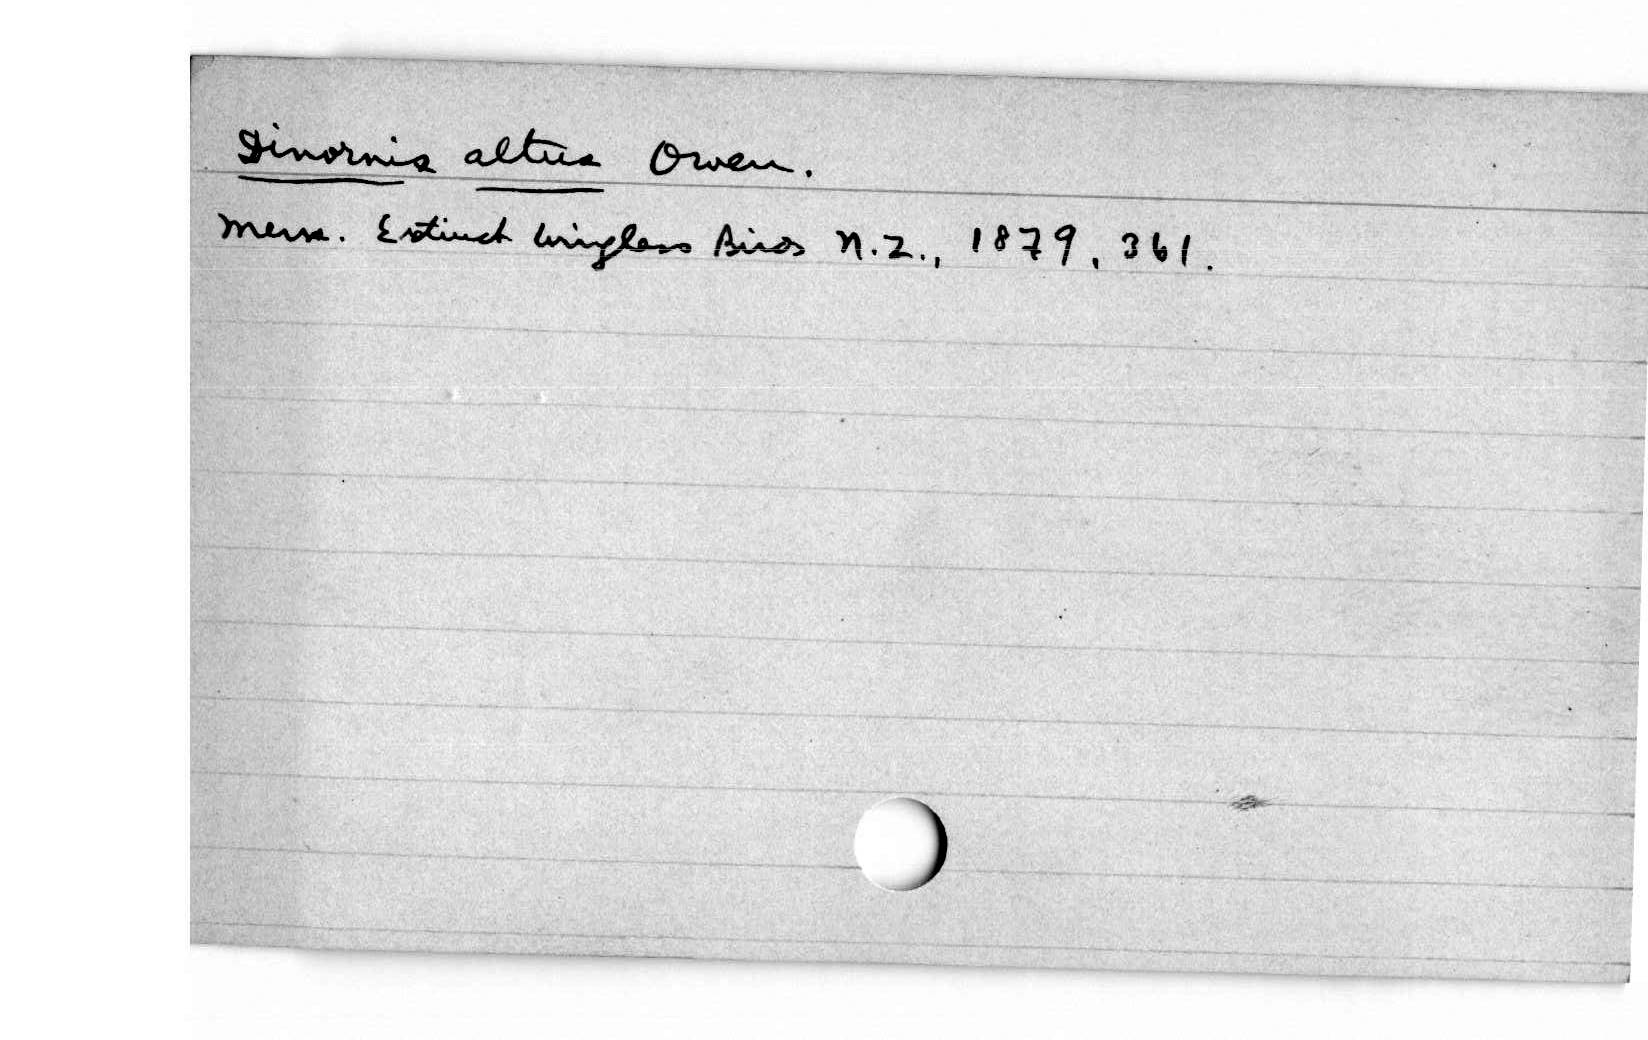 Dinornis altus Owen.
Mem. Extinct Wingless Birds N.Z., 1879, 361.